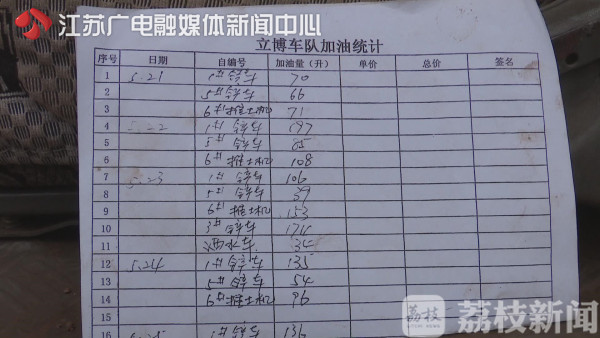 江苏广电融媒体新闻中心
立博车队加油统计
序号 日期 自编号 加油量（升） 单价 总价 签名
1 5.21 1# 铲车 70
2 5# 铲车 66
3 6# 推土机 71
4 5.22 1# 铲车 197
5 5# 铲车 85
6 6# 推土机 108
7 5.23 1# 铲车 106
8 5# 铲车 39
9 6# 推土机 153
10 3# 铲车
11 洒水车 34
12 5.24 1# 铲车 135
13 5# 铲车 54
14 6# 推土机 96
15
16 1# 铲车 136
荔枝
荔枝新闻